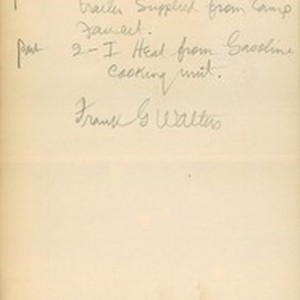 trailer Supplied from Camp
Faucet.
part 2-I Heat from Gasoline
cooking unit.
Frank G Walters